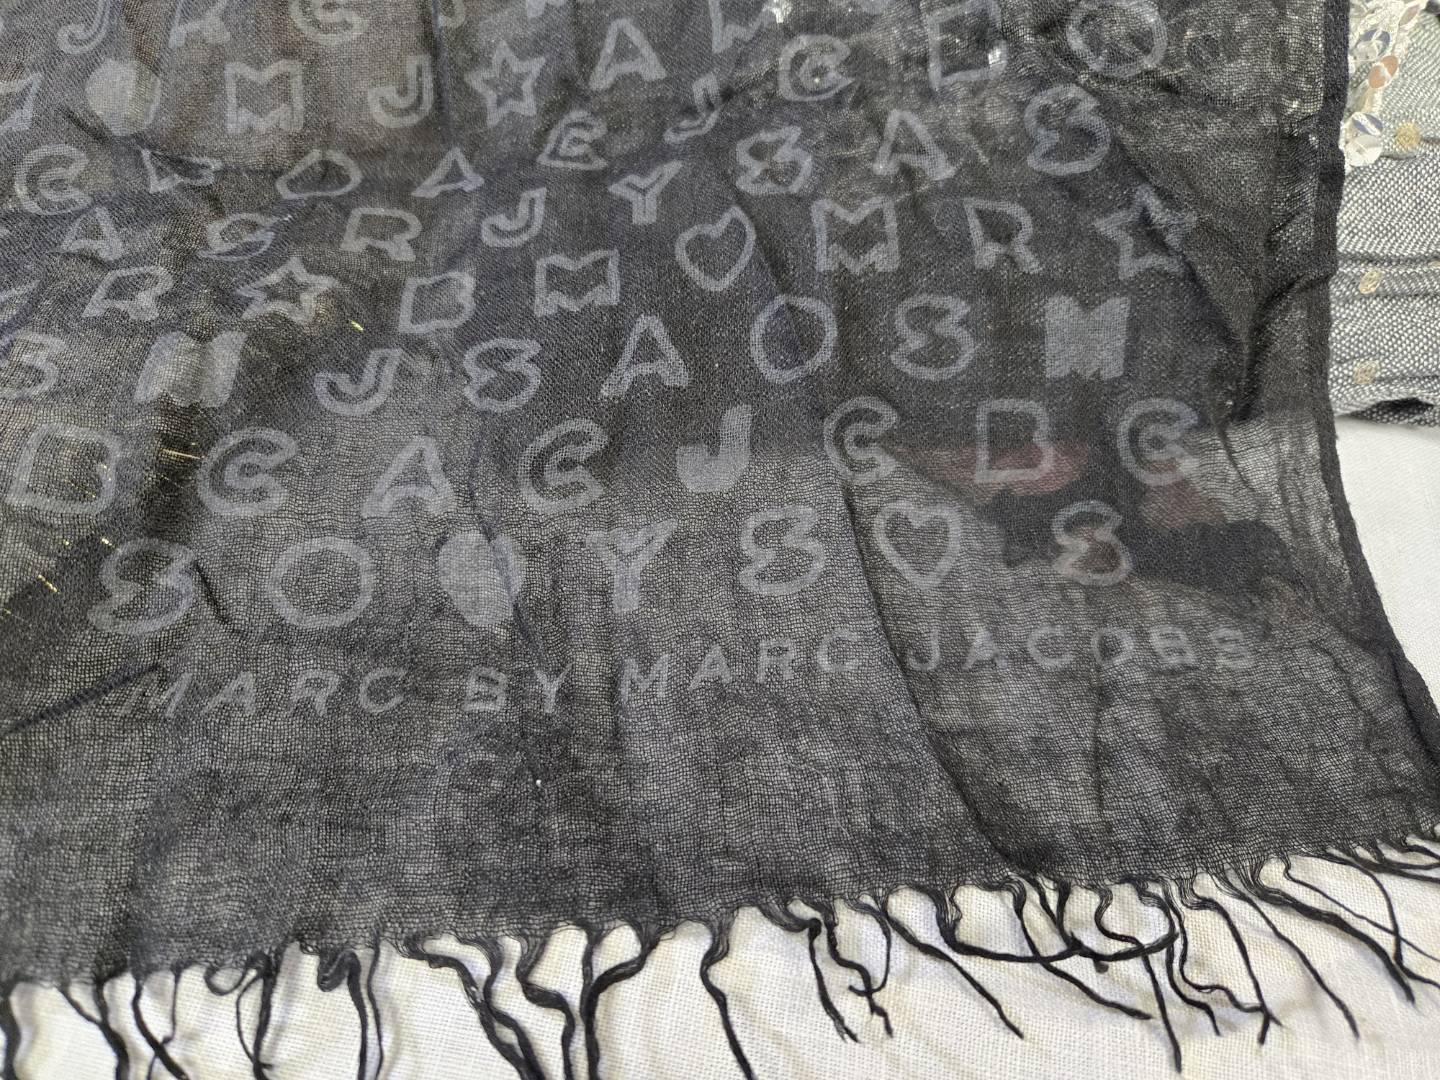 J R C J
M J A C B O
C B O A C J S A S
A S R J Y M R
R B M
S M J S A O S M
B C A C J C B C
S O Y S S
MARC BY MARC JACOBS